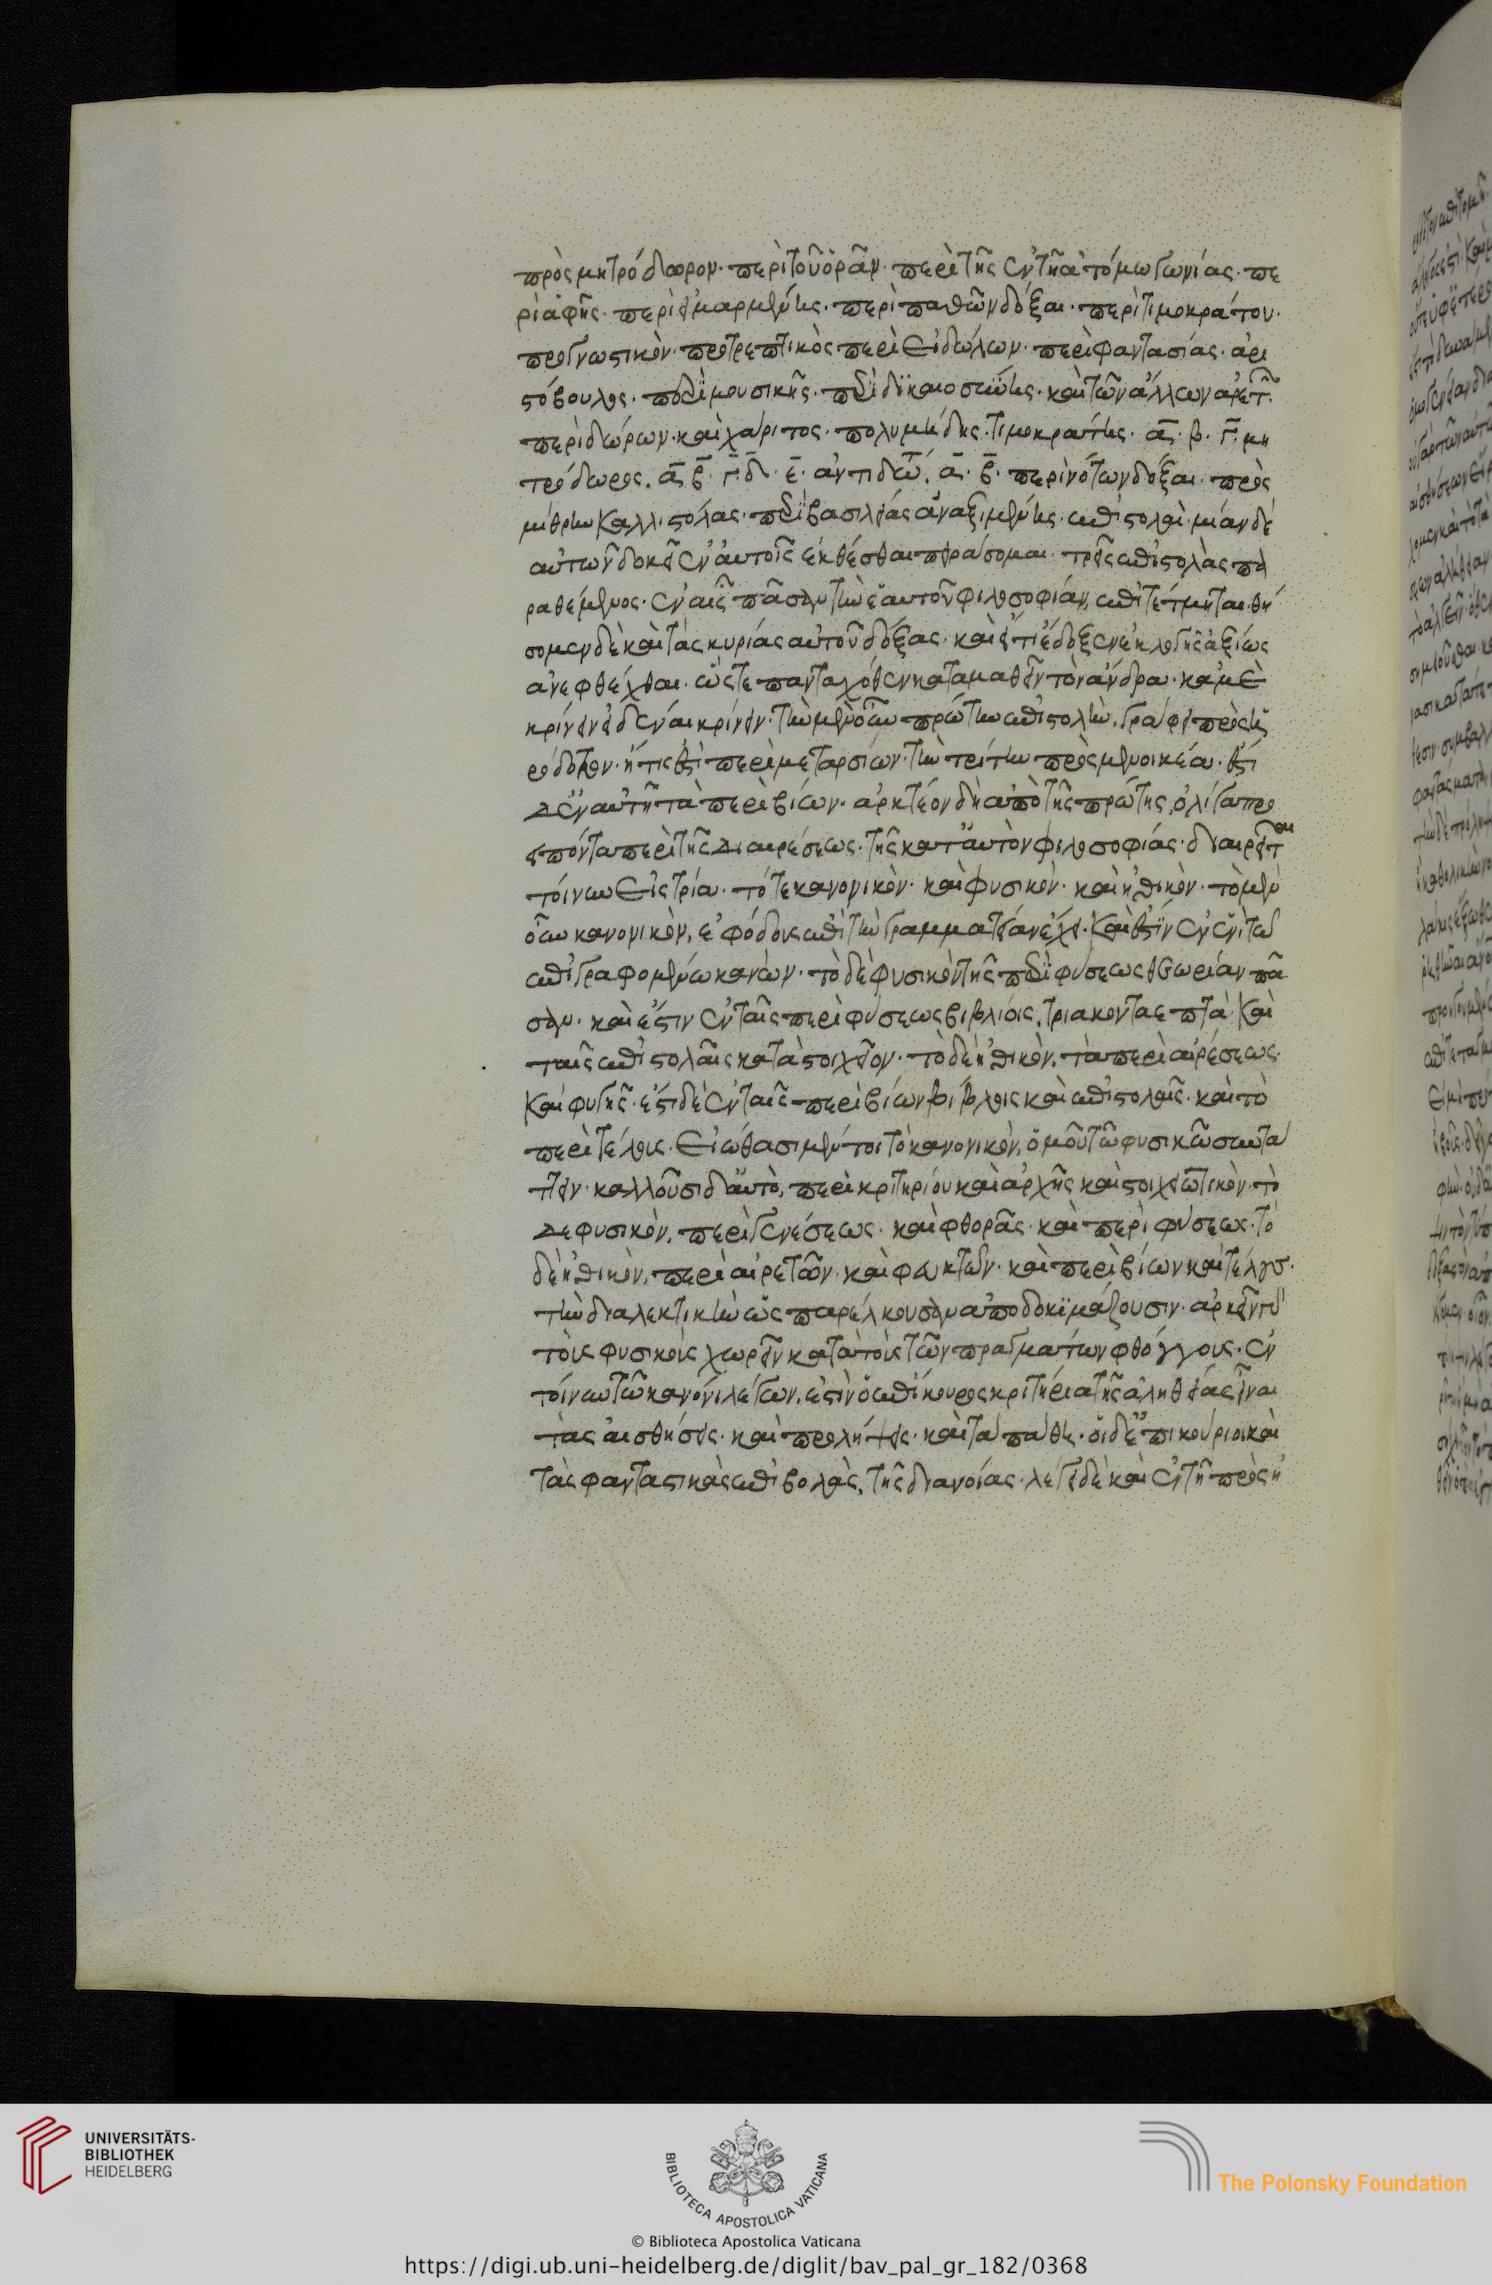 πρὸς μητρόδωρον· περὶ τοῦ ὁρᾶν· περὶ τῆς ἐν τῇ ἀτόμω γωνίας· πε
ρὶ ἁφῆς· περὶ εἱμαρμένης· περὶ παθῶν δόξαι· περὶ τιμοκράτον·
προγνωστικὸν· προτρεπτικὸς περὶ εἰδώλων· περὶ φαντασίας· ἀρι
στόβουλος· περὶ μουσικῆς· περὶ δικαιοσύνης· καὶ τῶν ἄλλων ἀρετ
περὶ δώρων· καὶ χάριτος· πολυμήδης· τιμοκράτης· α· β· γ· μη
τρόδωρος. α β γ· δ· ε· ἀντιδω α· β· περὶ νότων δόξαι· πρὸς
μίθρην καλλιστολας· περὶ βασιλείας ἀναξιμένης· ἐπιστολαὶ· μίαν δέ
αὐτῶν δοκεῖ ἐν αὐτοῖς ἐκθέσθαι πειράσομαι· τρεῖς ἐπιστολὰς πα
ραθέμενος· ἐν αἷς πᾶσαν τὴν ἑαυτοῦ φιλοσοφίαν, ἐπιτέτμηται· θή
σομεν δὲ καὶ τὰς κυρίας αὐτοῦ δόξας· καὶ εἴ τι ἔδοξεν ἐκλογῆς ἀξίως
ἀνεφθέχθαι· ὥστε πανταχόθεν καταμαθεῖν τὸν ἄνδρα· καμὲ
κρίνειν εἰδέναι κρίνειν· τὴν μὲν οὖν πρώτην ἐπιστολὴν, γράφει πρὸς ἡ
ρόδοτον· ἥτις ἐστὶ περὶ μεταρσίων· τὴν τρίτην πρὸς μενοικέα· ἔστι
δ' ἐν αὐτῇ τὰ περὶ βίων· ἀρκτέον δὴ ἀπὸ τῆς πρώτης, ὀλίγα προ
ειπόντα περὶ τῆς διαιρέσεως· τῆς κατ' αὐτὸν φιλοσοφίας· διαιρεῖται
τοίνυν εἰς τρία· τό τε κανονικὸν· καὶ φυσικὸν· καὶ ἠθικὸν· τὸ μὲν
οὖν κανονικὸν, ἐφόδοις ἐπὶ τὴν γραμματείαν ἔχει· καὶ ἔστιν ἐν ἑνὶ τῶ
ἐπιγραφομένω κανὼν· τὸ δὲ φυσικὸν τῆς περὶ φύσεως θεωρίαν πᾶ
σαν· καὶ ἔστιν ἐν ταῖς περὶ φύσεως βιβλίοις, τριακονταεπτὰ· καὶ
ταῖς ἐπιστολαῖς κατὰ στοιχεῖον· τὸ δὲ ἠθικὸν, τὰ περὶ αἱρέσεως·
καὶ φυγῆς· ἔστι δὲ ἐν ταῖς περὶ βίων βίβλοις καὶ ἐπιστολαῖς· καὶ τὸ
περὶ τέλους. εἰώθασι μέντοι τὸ κανονικὸν, ὁμοῦ τῶ φυσικῶ συντά
ττειν· καλλοῦσι δ' αὐτὸ, περὶ κριτηρίου καὶ ἀρχῆς καὶ στοιχειωτικὸν· τὸ
δὲ φυσικὸν, περὶ γενέσεως· καὶ φθορᾶς· καὶ περὶ φύσεως· τὸ
δὲ ἠθικὸν, περὶ αἱρετῶν· καὶ φευκτῶν· καὶ περὶ βίων καὶ τέλους·
τὴν διαλεκτικὴν ὡς παρέλκουσαν ἀποδοκιμάζουσιν· ἀρκεῖν γὰρ
τοὺς φυσικοὺς χωρεῖν κατὰ τοὺς τῶν πραγμάτων φθόγγους· ἐν
τοίνυν τῶ κανόνι λέγων, ἐστὶν ὁ ἐπίκουρος κριτήρια τῆς ἀληθείας εἶναι
τὰς αἰσθήσεις· καὶ προλήψεις· καὶ τὰ πάθη· οἱ δ' ἐπικούριοι καὶ
τὰς φανταστικὰς ἐπιβολὰς, τῆς διανοίας· λέγει δὲ καὶ ἐν τῇ πρὸς ἡ
UNIVERSITÄTS-
BIBLIOTHEK
HEIDELBERG
BIBLIOTECA APOSTOLICA VATICANA
The Polonsky Foundation
© Biblioteca Apostolica Vaticana
https://digi.ub.uni-heidelberg.de/diglit/bav_pal_gr_182/0368